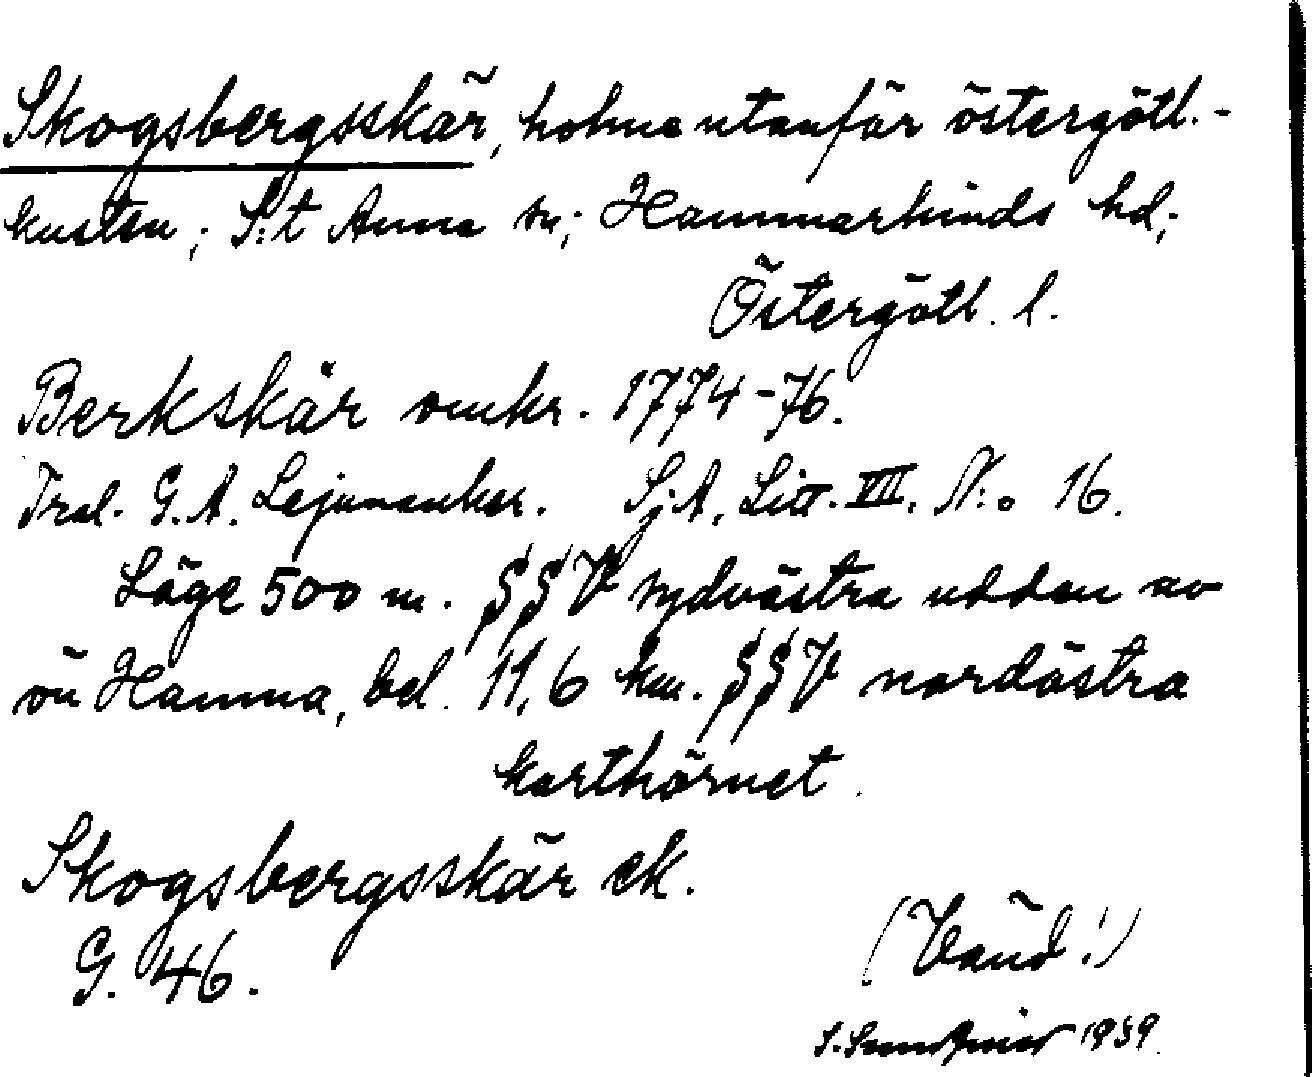 Skogsbergsskär, holme utanför östergötl.-
kusten; S:t Anna sn; Hammarkinds hd;
Östergötl. l.
Berkskär omkr. 1774-76.
Tral. G. A. Lejonanker. Sj.A. Litt. VII. N:o 16.
Läge 500 m. SSV sydvästra udden av
ön Hamna, bel. 11,6 km. SSV nordöstra
karthörnet.
Skogsbergsskär ek.
G. 46.
(Vänd!)
S. 1939